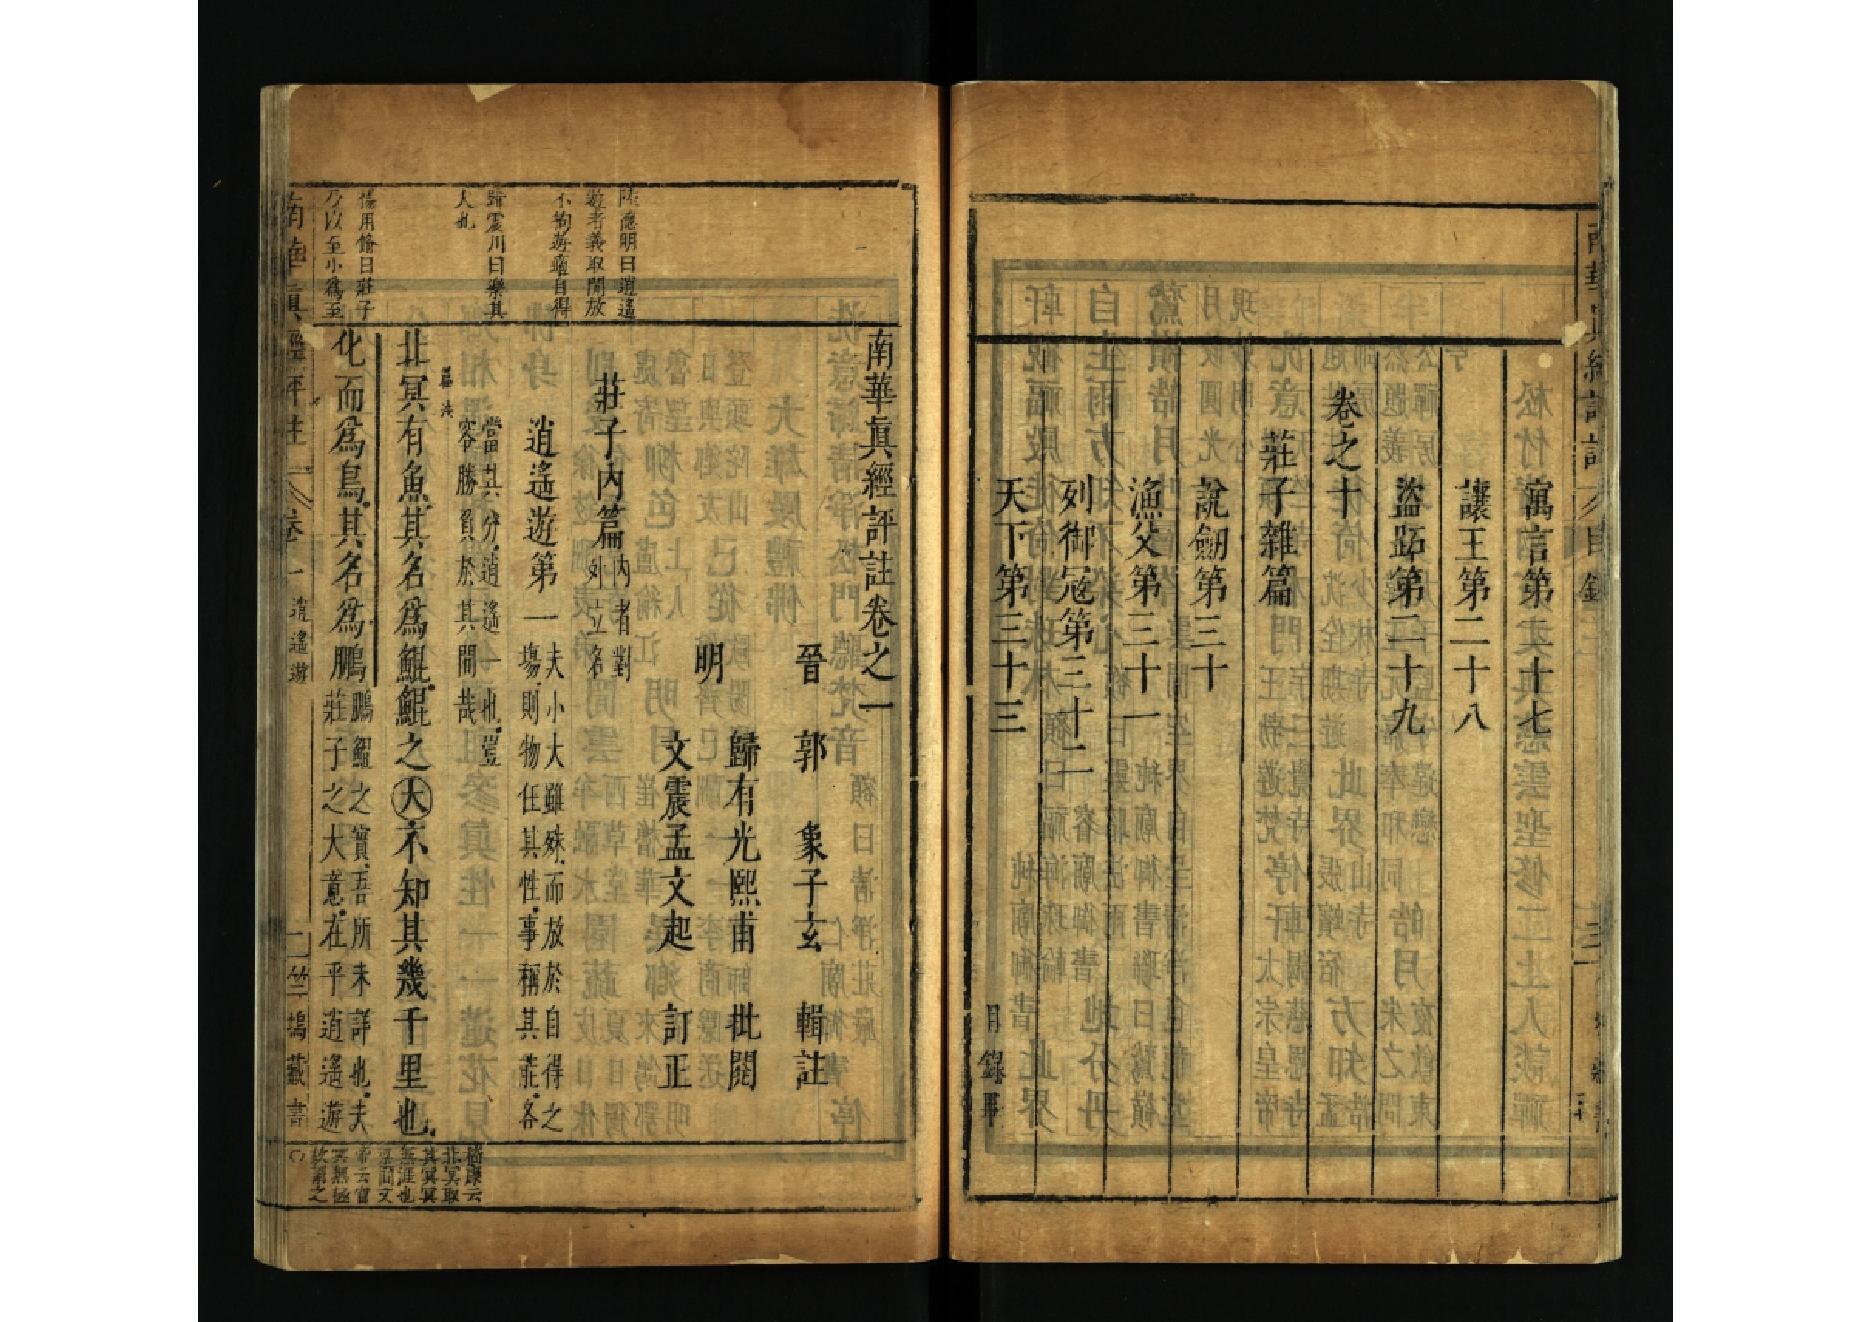 寓言第二十七
讓王第二十八
盜跖第二十九
卷之十
莊子雜篇
說劒第三十
漁父第三十一
列御冦第三十二
天下第三十三
目錄畢
南華眞經評註卷之一
晉 郭 象子玄 輯註
明 歸有光熙甫 批閱
文震孟文起 訂正
莊子內篇
內者對
外立名
逍遙遊第一
夫小大雖殊而放於自得之
塲則物任其性事稱其能各
當其分逍遙一也豈
容勝負於其間哉
北冥有魚其名爲鯤鯤之大不知其幾千里也
化而爲鳥其名爲鵬
鵬鯤之實吾所未詳也夫
莊子之大意在乎逍遙遊
陸德明曰逍遙
遊者義取閒放
不拘遊適自得
歸震川曰樂其
大也
楊用脩曰莊子
乃以至小爲至
嵇康云
北冥取
其冥冥
無涯也
梁簡文
帝云窅
冥無極
故謂之
南華眞經評註 卷一 逍遙遊 一 竺塢藏書